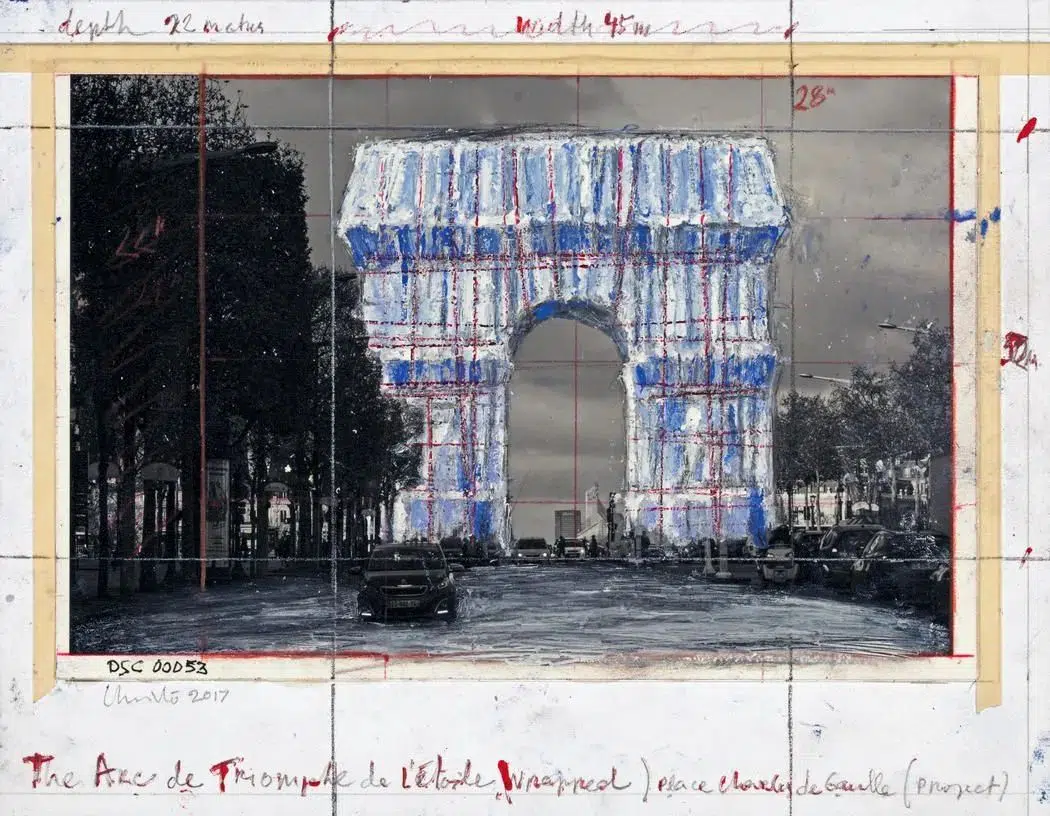 depth 22 metres width 45m
28"
DSC 00053
Christo 2017
The Arc de Triomphe de L'Étoile Wrapped) Place Charles de Gaulle (Project)